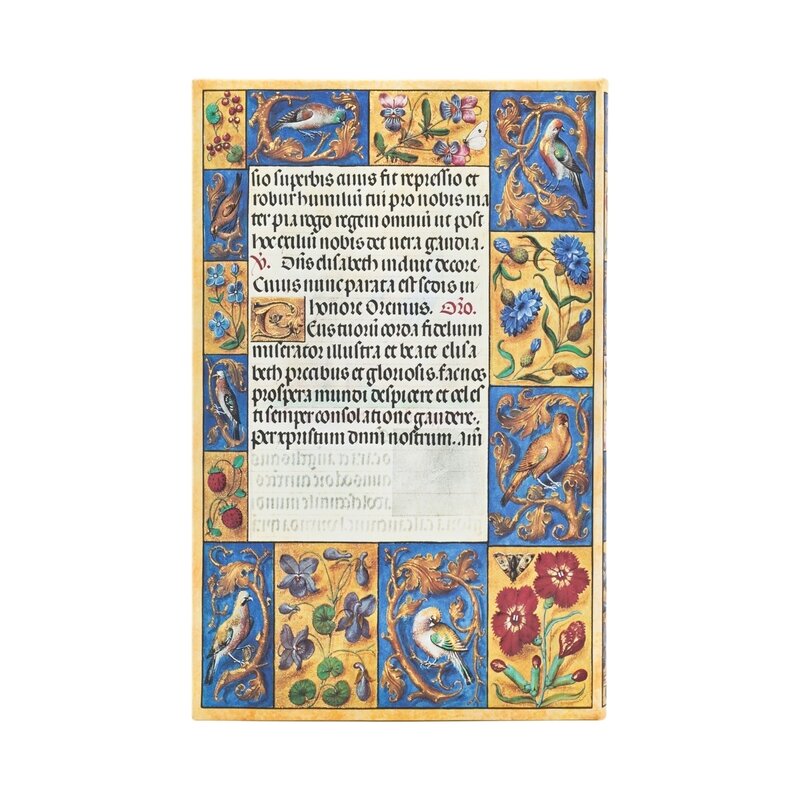 sio superbis cuius fit repressio et
robur humiliū tu pro nobis ma
ter pia rogo regem omniū ut post
hoc exiliū nobis det uera gaudia.
V. Dn̄s elisabeth induit decore
Cuius nunc parata est sedis in
honore Oremus. Orō.
Eus tuorū corda fidelium
miserator illustra et beate elisa
beth precibus et gloriosis. fac nos
prospera mundi despicere et celes
ti semper consolatione gaudere.
Per xpristum dnm̄ nostrum. am̄